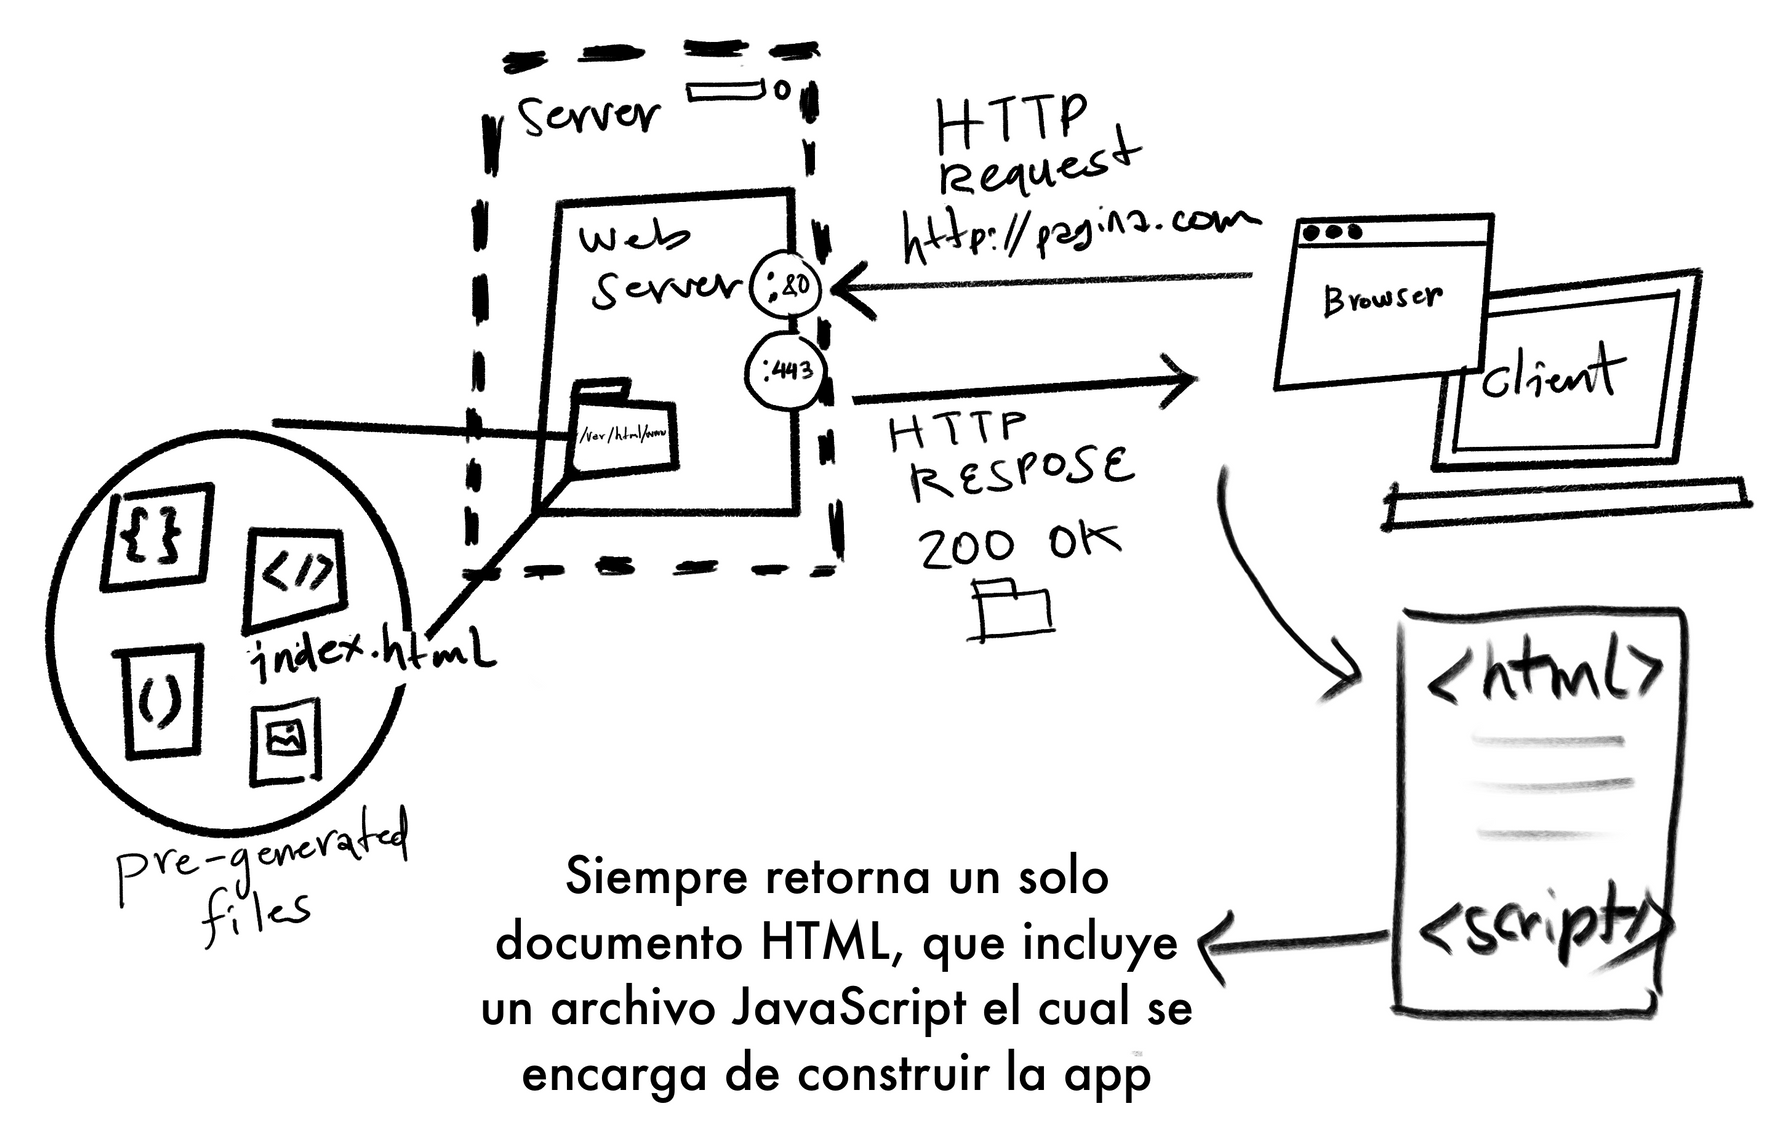 Server
Web
Server
:80
:443
/ver/html/www
HTTP
Request
http://pagina.com
Browser
Client
HTTP
RESPOSE
200 OK
{}
</>
index.html
()
pre-generated
files
<html>
<script/>
Siempre retorna un solo
documento HTML, que incluye
un archivo JavaScript el cual se
encarga de construir la app